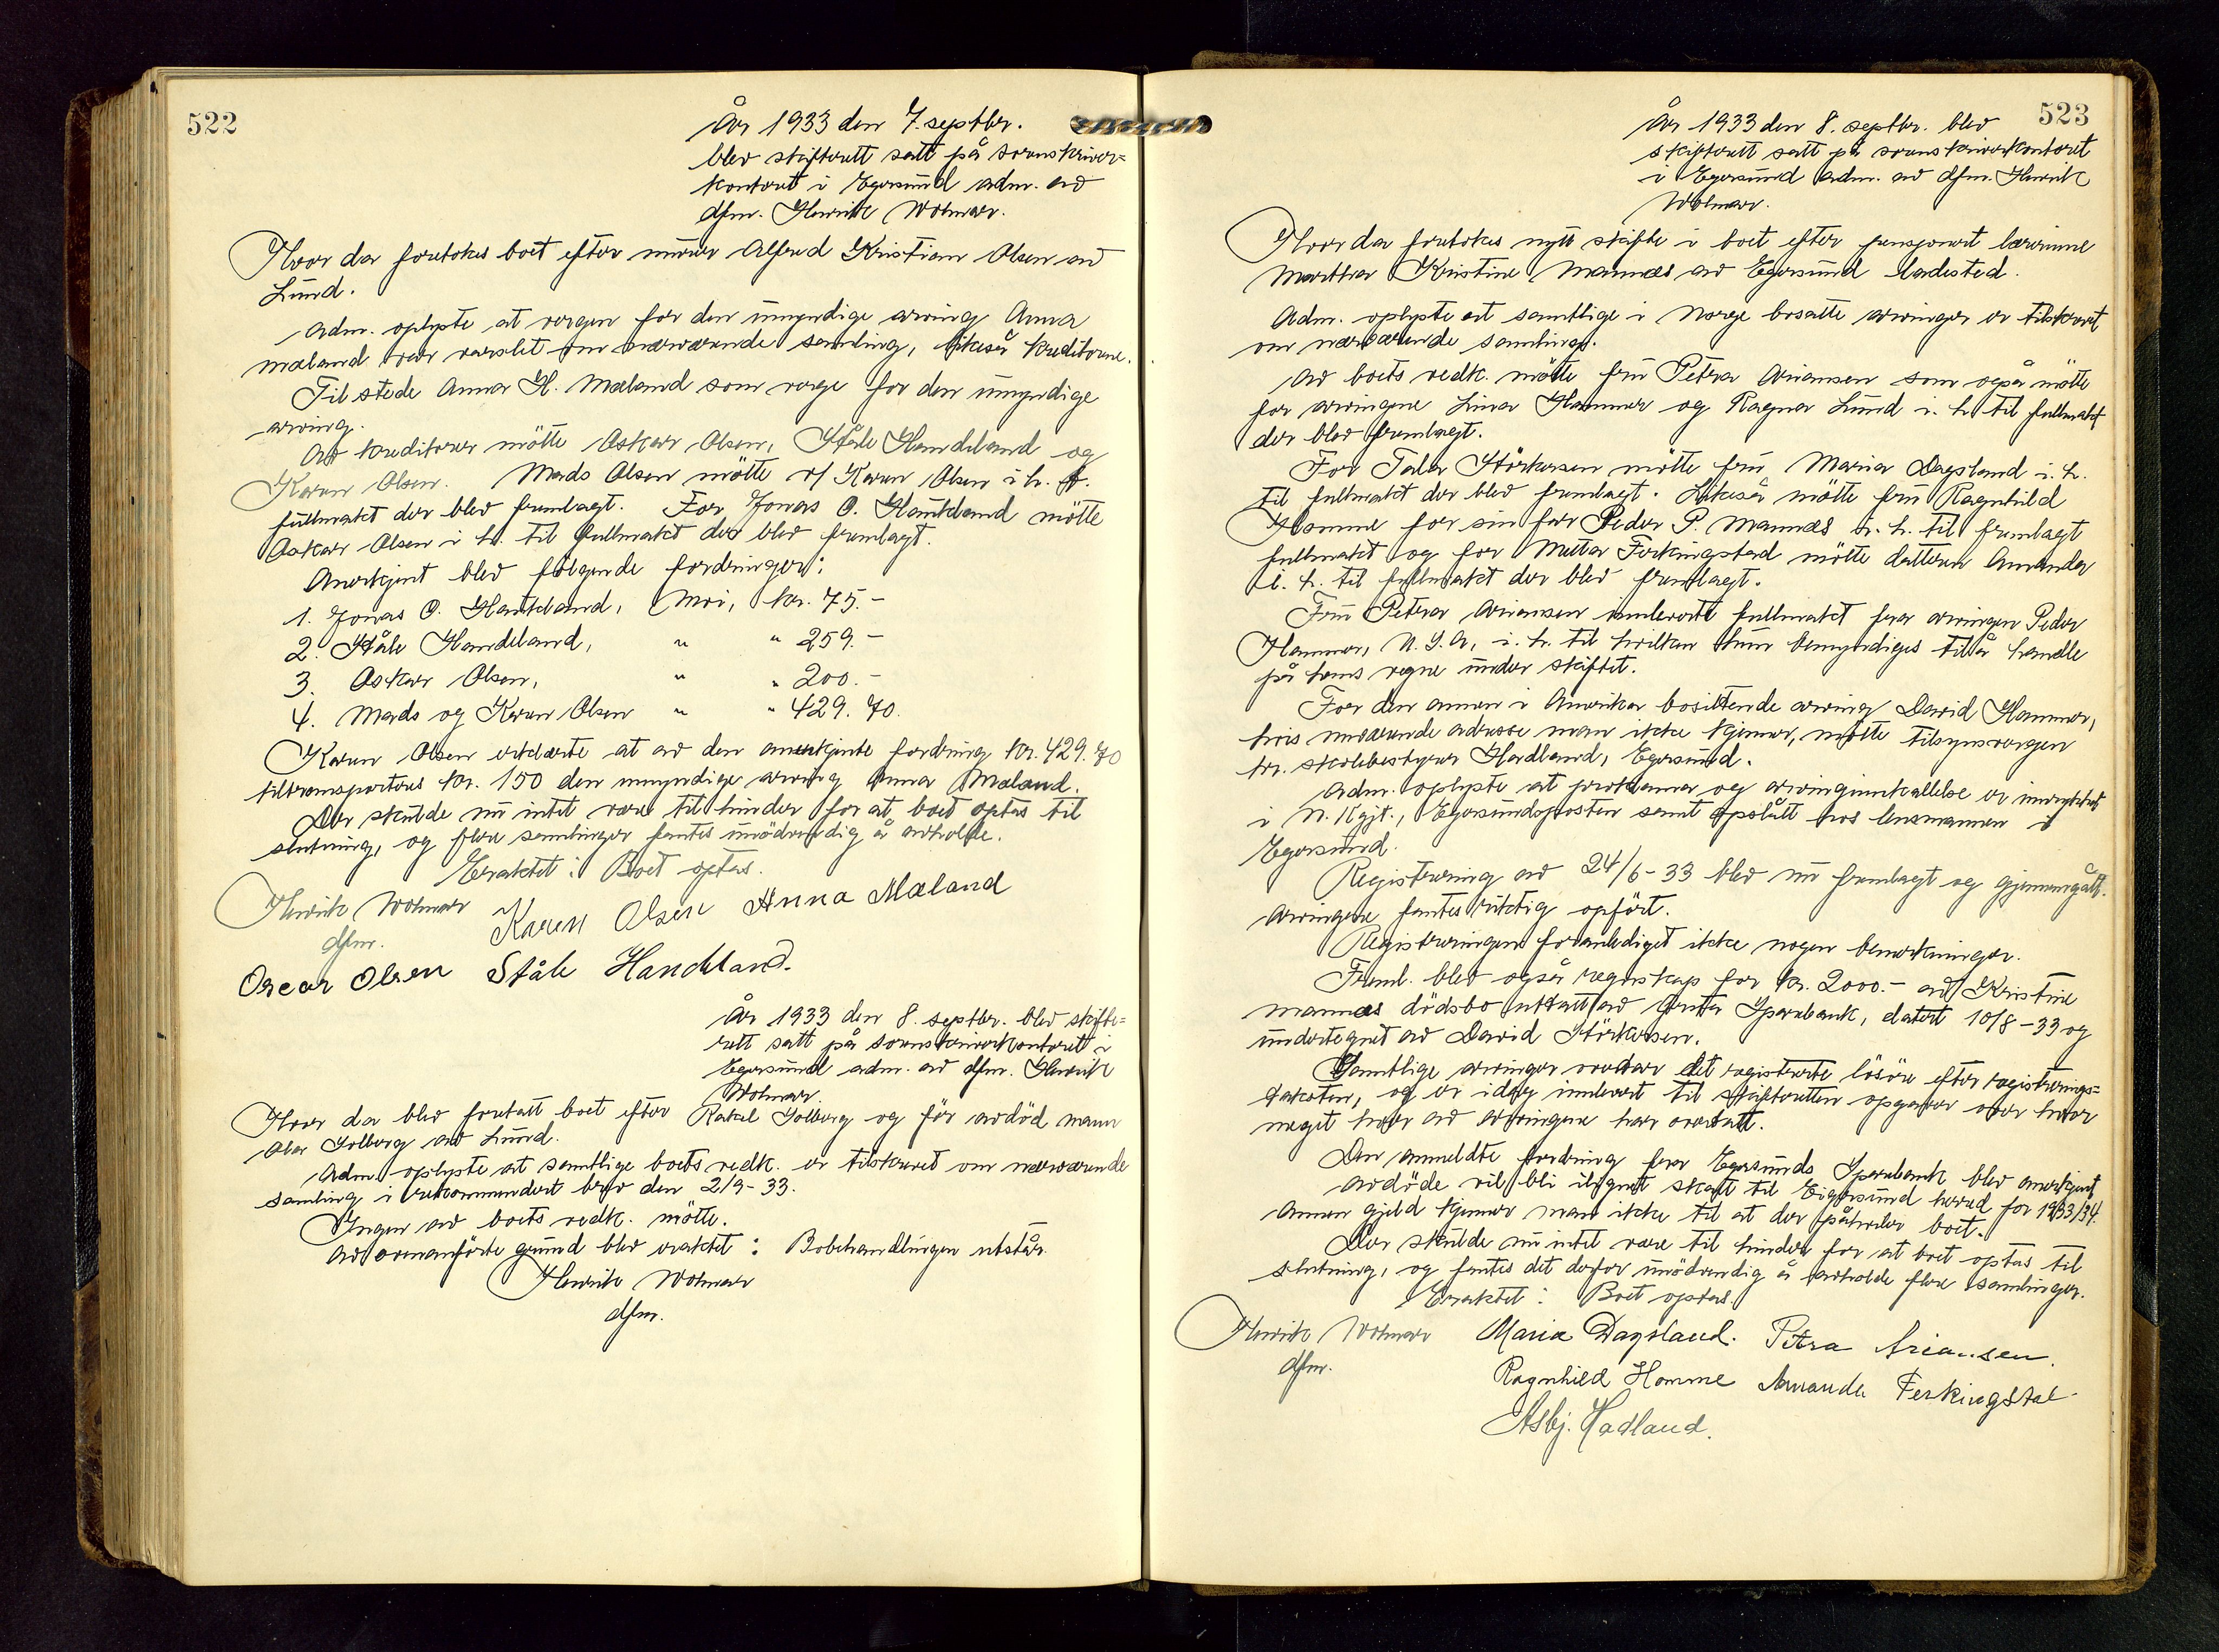 522
År 1933 den 7. septbr.
blev skifterett satt på sorenskriver=
kontoret i Egersund adm. av
dfm. Henrik Wolmar.
Hvor da foretokes boet efter murer Alfred Kristian Olsen av
Lund.
Adm. oplyste at vergen for den umyndige arving Anna
Mæland var varslet om nærværende samling, likeså kreditorene.
Tilstede Anna H. Mæland som verge for den umyndige
arving.
Av kreditorer mötte Oskar Olsen, Ståle Handeland og
Karen Olsen. Mads Olsen mötte v/ Karen Olsen i h. t.
fullmakt der blev fremlagt. For Jonas O. Haukland mötte
Oskar Olsen i h. til fullmakt der blev fremlagt.
Anerkjent blev fölgende fordringer:
1. Jonas O. Haukland, Moi, kr. 75.-
2. Ståle Handeland, " " 259.-
3. Oskar Olsen, " " 200.-
4. Mads og Karen Olsen " " 429.70.
Karen Olsen erklærte at av den anerkjente fordring kr. 429.70
tiltransporteres kr. 150 den umyndige arving Anna Mæland.
Der skulde nu intet være til hinder for at boet optas til
slutning, og flere samlinger fantes unödvendig å avholde.
Eraktet: Boet optas.
Henrik Wolmar Karen Olsen Anna Mæland
dfm.
Oscar Olsen Ståle Handeland.
År 1933 den 8. septbr. blev skifte=
rett satt på sorenskriverkontoret i
Egersund adm. av dfm. Henrik
Wolmar.
Hvor da blev foretatt boet efter Rakel Solberg og för avdöd mann
Olai Solberg av Lund.
Adm. oplyste at samtlige boets vedk. er tilskrevet om nærværende
samling i rekommandert brev den 2/9-33.
Ingen av boets vedk. mötte.
Av ovenanförte grund blev eraktet: Bobehandlingen utstår.
Henrik Wolmar
dfm.
523
År 1933 den 8. septbr. blev
skifterett satt på sorenskriverkontoret
i Egersund adm. av dfm. Henrik
Wolmar.
Hvor da foretokes nytt skifte i boet efter pensjonert lærerinne
Marttha Kristine Mannæs av Egersund ladested.
Adm. oplyste at samtlige i Norge bosatte arvinger er tilskrevet
om nærværende samling.
Av boets vedk. mötte fru Petra Ariansen som også mötte
for arvingene Lina Hammer og Ragna Lund i. h. til fullmakt
der blev fremlagt.
For Tala Störkersen mötte fru Maria Dagsland i. h.
til fullmakt der blev fremlagt. Likeså mötte fru Ragnhild
Homme for sin far Peder P. Mannæs i. h. til fremlagt
fullmakt og for Meta Ferkingstad mötte datteren Amanda
i. h. til fullmakt der blev fremlagt.
Fru Petra Ariansen innleverte fullmakt fra arvingen Peder
Hammer, U. S. A, i. h. til hvilken hun bemyndiges til å handle
på hans vegne under skiftet.
For den annen i Amerika bosittende arving David Hammer,
hvis nuværende adresse man ikke kjenner, mötte tilsynsvergen
hr. skolebestyrer Hadland, Egersund.
Adm. oplyste at proklama og arvinginnkallelse er innrykket
i N. Kgjt., Egersundsposten samt opslått hos lensmannen i
Egersund.
Registrering av 24/6-33 blev nu fremlagt og gjennemgått.
Arvingene fantes riktig opfört.
Registreringen foranlediget ikke nogen bemerkninger.
Freml. blev også regnskap for kr. 2000.- av Kristine
Mannæs dödsbo uttatt av Sparebank, datert 10/8-33 og
undertegnet av David Störkersen.
Samtlige arvinger overtar det registrerte lösöre efter registrerings=
taksten, og er idag innlevert til skifteretten opgaver over hvor
meget hver av arvingene har overtatt.
Den anmeldte fordring fra Egersunds Sparebank blev anerkjent.
Avdöde vil bli ilignet skatt til Eigersund herred for 1933/34.
Annen gjeld kjenner man ikke til at der påhviler boet.
Der skulde nu intet være til hinder for at boet optas til
slutning, og fantes det derfor unödvendig å avholde flere samlinger.
Eraktet: Boet optas.
Henrik Wolmar Maria Dagsland. Petra Ariansen.
dfm.
Ragnhild Homme Amanda Ferkingstad
Asbj. Hadland.